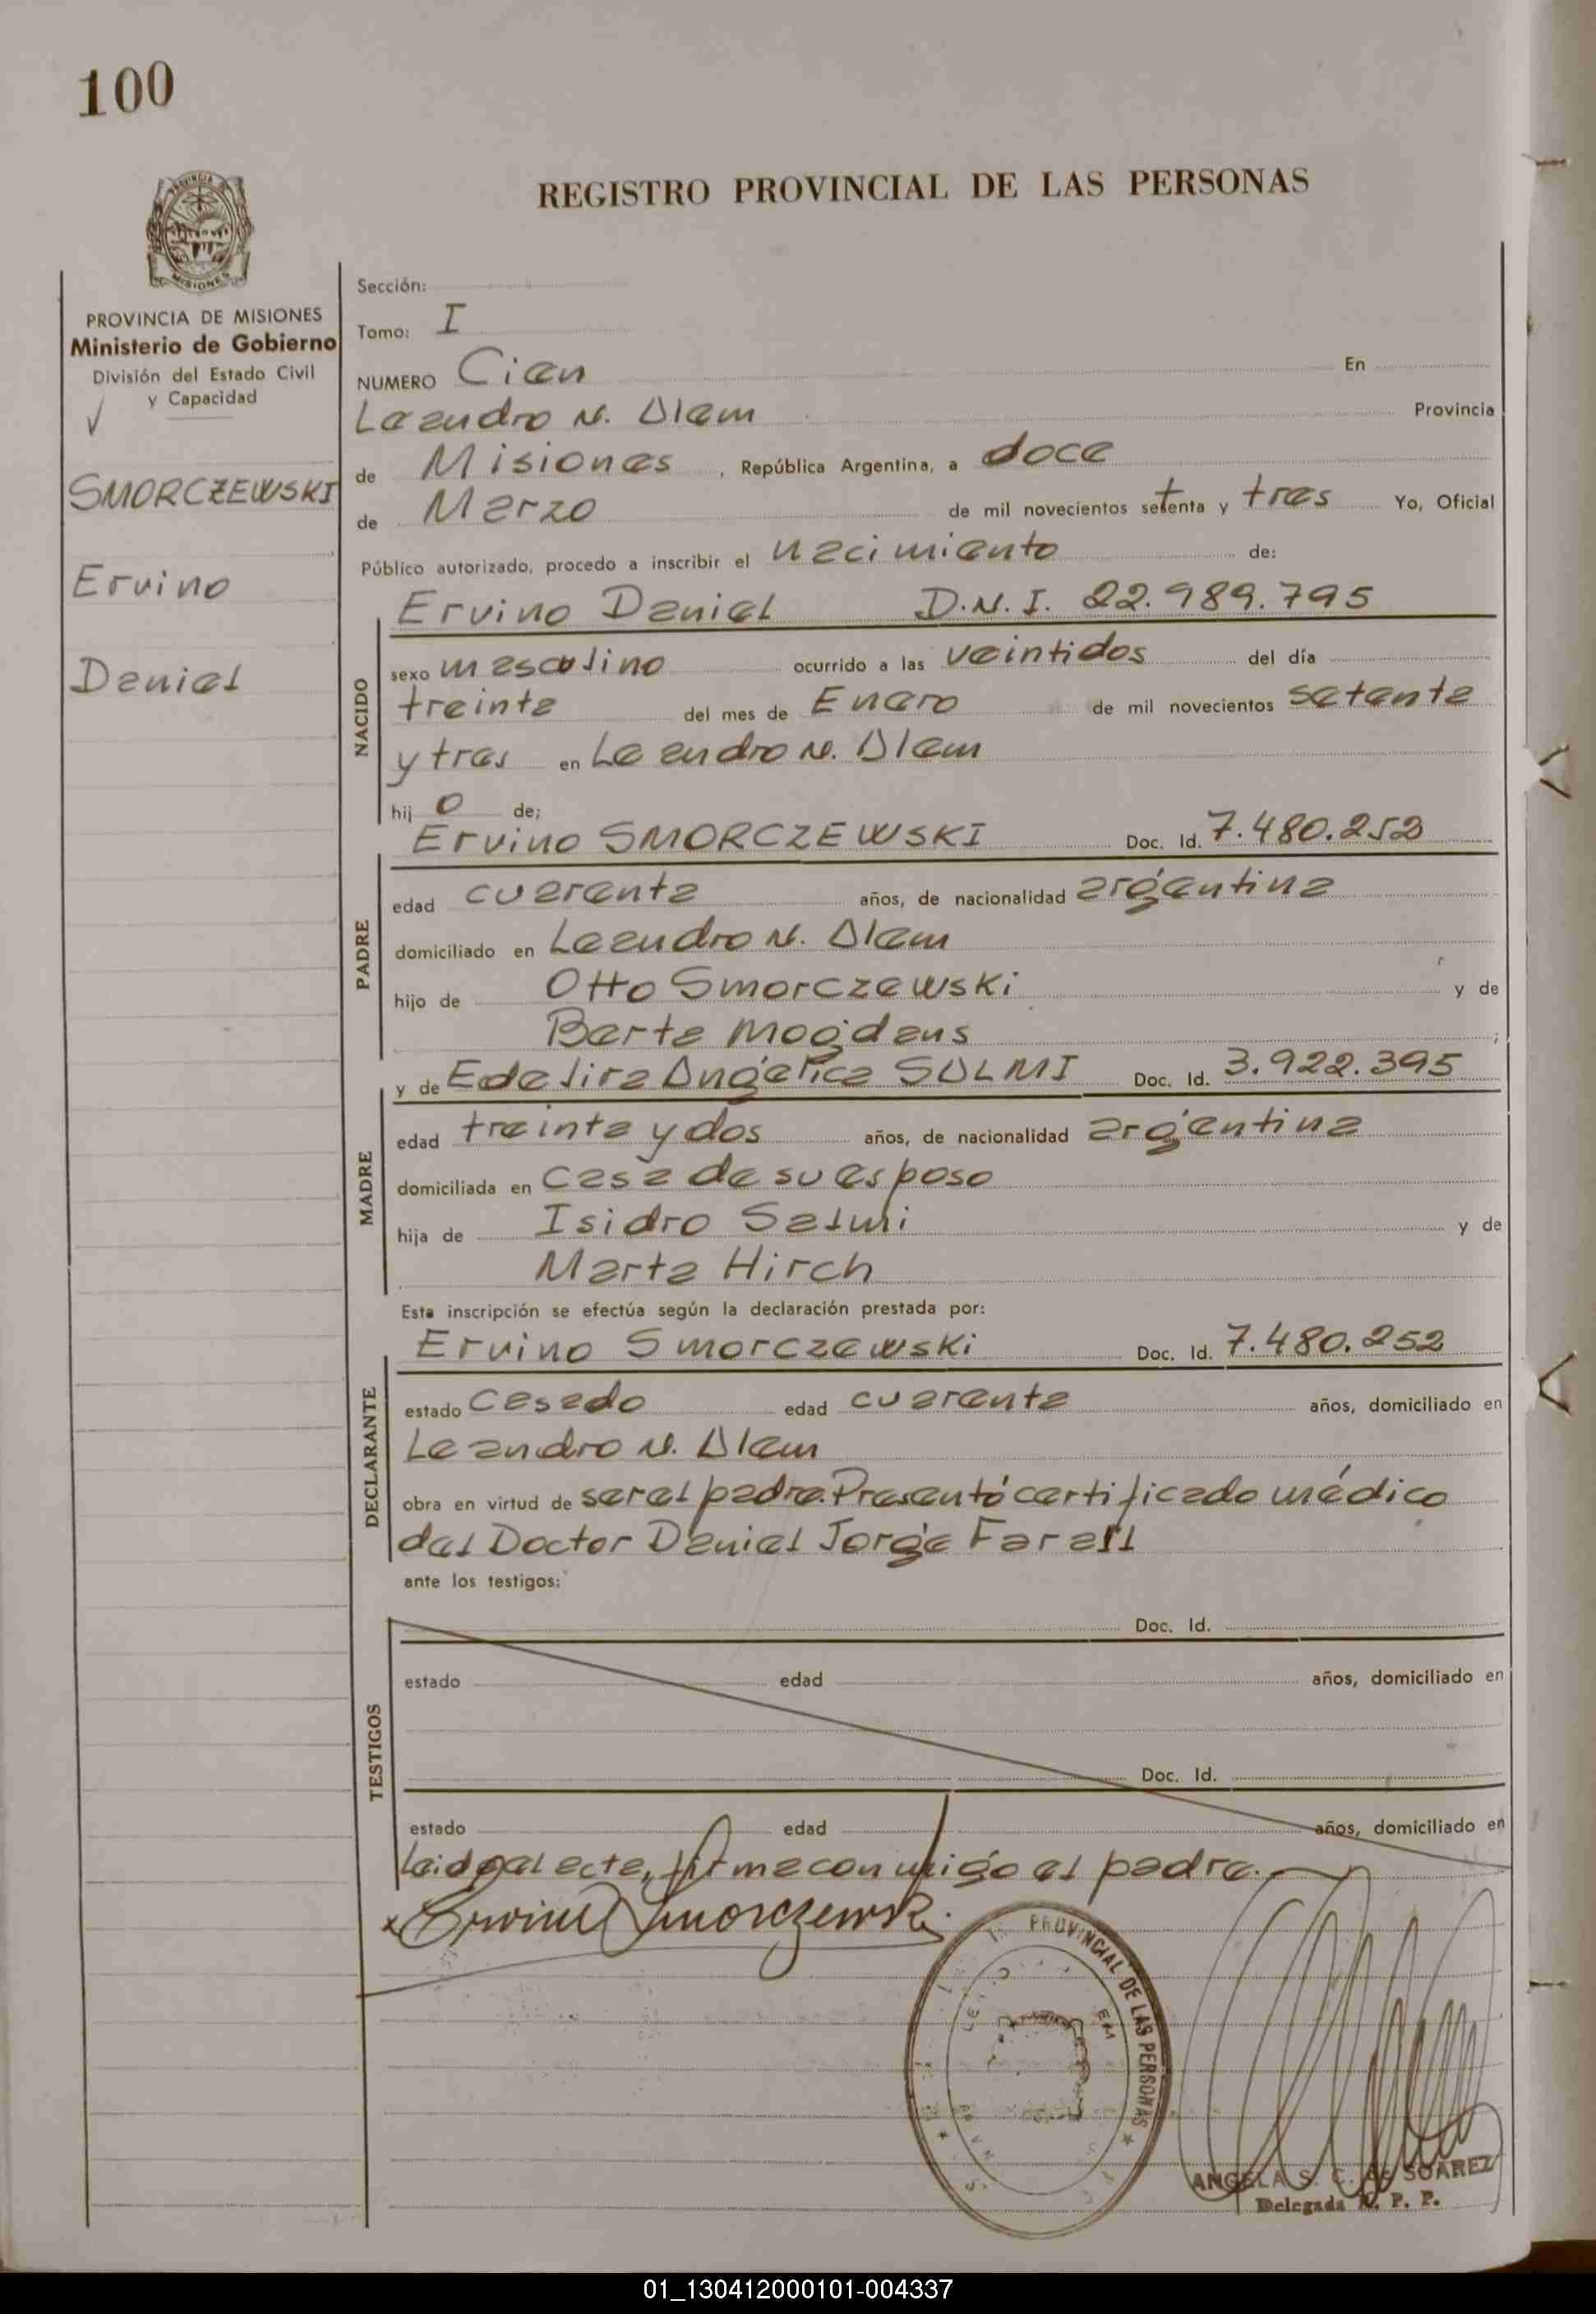 100
REGISTRO PROVINCIAL DE LAS PERSONAS
PROVINCIA DE MISIONES
Ministerio de Gobierno
División del Estado Civil
y Capacidad
SMORCZEWSKI
Ervino
Daniel
Sección:
Tomo: I
NUMERO Cien En
Leandro N. Alem Provincia
de Misiones, República Argentina, a doce
de Marzo de mil novecientos setenta y tres Yo, Oficial
Público autorizado, procedo a inscribir el nacimiento de:
Ervino Daniel D.N.I. 22.989.795
NACIDO
sexo masculino ocurrido a las veintidos del día
treinta del mes de Enero de mil novecientos setenta
y tres en Leandro N. Alem
hij o de;
Ervino SMORCZEWSKI Doc. Id. 7.480.252
PADRE
edad cuarenta años, de nacionalidad argentina
domiciliado en Leandro N. Alem
hijo de Otto Smorczewski y de
Berta Mogdans;
y de Edelira Angélica SALMI Doc. Id. 3.922.395
MADRE
edad treinta y dos años, de nacionalidad argentina
domiciliada en casa de su esposo
hija de Isidro Salmi y de
Marta Hirch
Esta inscripción se efectúa según la declaración prestada por:
Ervino Smorczewski Doc. Id. 7.480.252
DECLARANTE
estado casado edad cuarenta años, domiciliado en
Leandro N. Alem
obra en virtud de ser el padre. Presentó certificado médico
del Doctor Daniel Jorge
ante los testigos:
Doc. Id.
TESTIGOS
estado edad años, domiciliado en
Doc. Id.
estado edad años, domiciliado en
Leida el acta, firma conmigo el padre.
Ervino Smorczewski
PROVINCIAL DE LAS PERSONAS
ANGELA S. C. de SUAREZ
Delegada R. P. P.
01_130412000101-004337